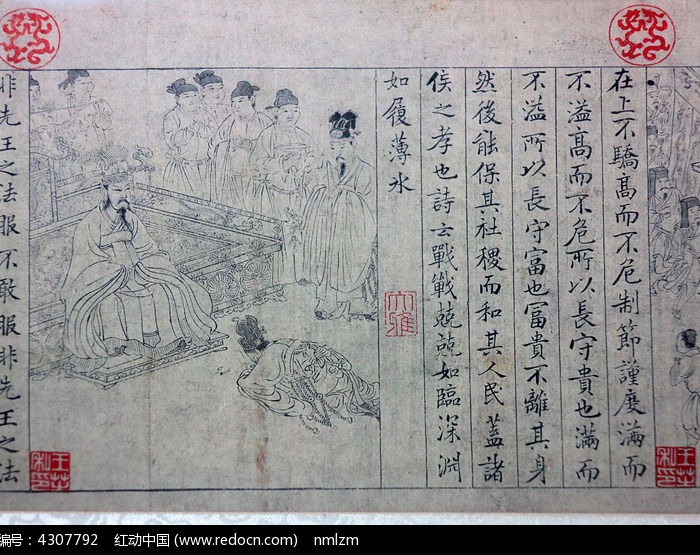 在上不驕高而不危制節謹度滿而
不溢高而不危所以長守貴也滿而
不溢所以長守富也富貴不離其身
然後能保其社稷而和其人民蓋諸
侯之孝也詩云戰戰兢兢如臨深淵
如履薄冰
大雅
非先王之法服不敢服非先王之法
编号：4307792 红动中国 (www.redocn.com) nmlzm